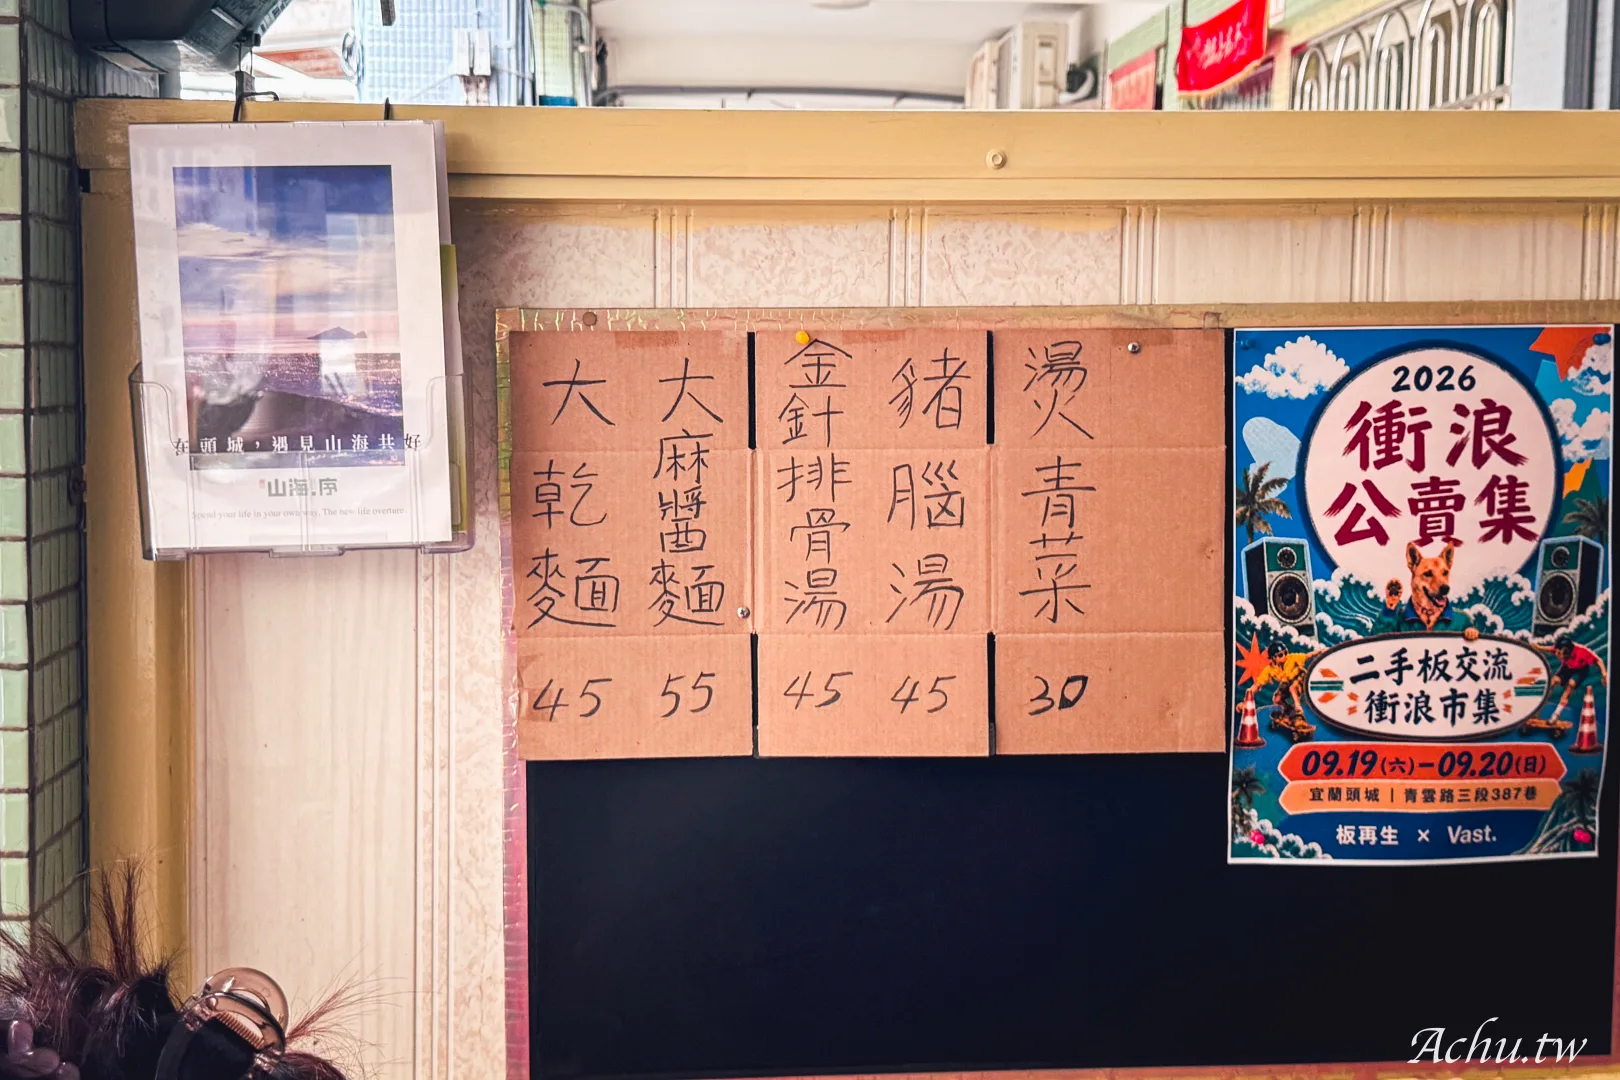 在頭城，遇見山海共好
山海.序
Spend your life in your own way. The new life overture.
大乾麵
45
大麻醬麵
55
金針排骨湯
45
豬腦湯
45
燙青菜
30
2026
衝浪
公賣集
二手板交流
衝浪市集
09.19(六)-09.20(日)
宜蘭頭城 | 青雲路三段387巷
板再生 × Vast.
Achu.tw